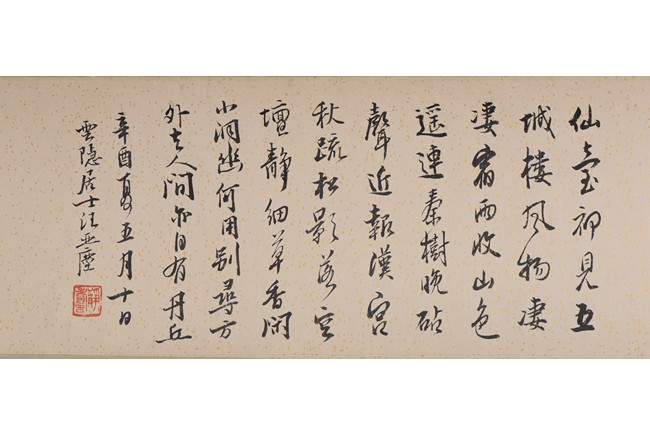 仙臺初見五
城樓風物淒
淒宿雨收山色
遥連秦樹晚砧
聲近報漢宮
秋疏松影落空
壇靜細草香閑
小洞幽何用別尋方
外去人間亦自有丹丘
辛酉夏五月十日
雲隱居士汪亞塵